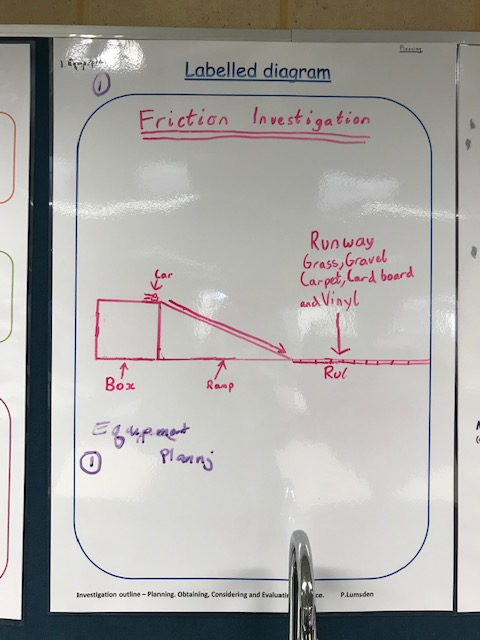 Planning
Labelled diagram
1
Friction Investigation
Runway
Grass, Gravel
Carpet, Card board
and Vinyl
Car
Box
Ramp
Rul
Equipment
1 Plannj
Investigation outline – Planning. Obtaining, Considering and Evaluati ce. P.Lumsden